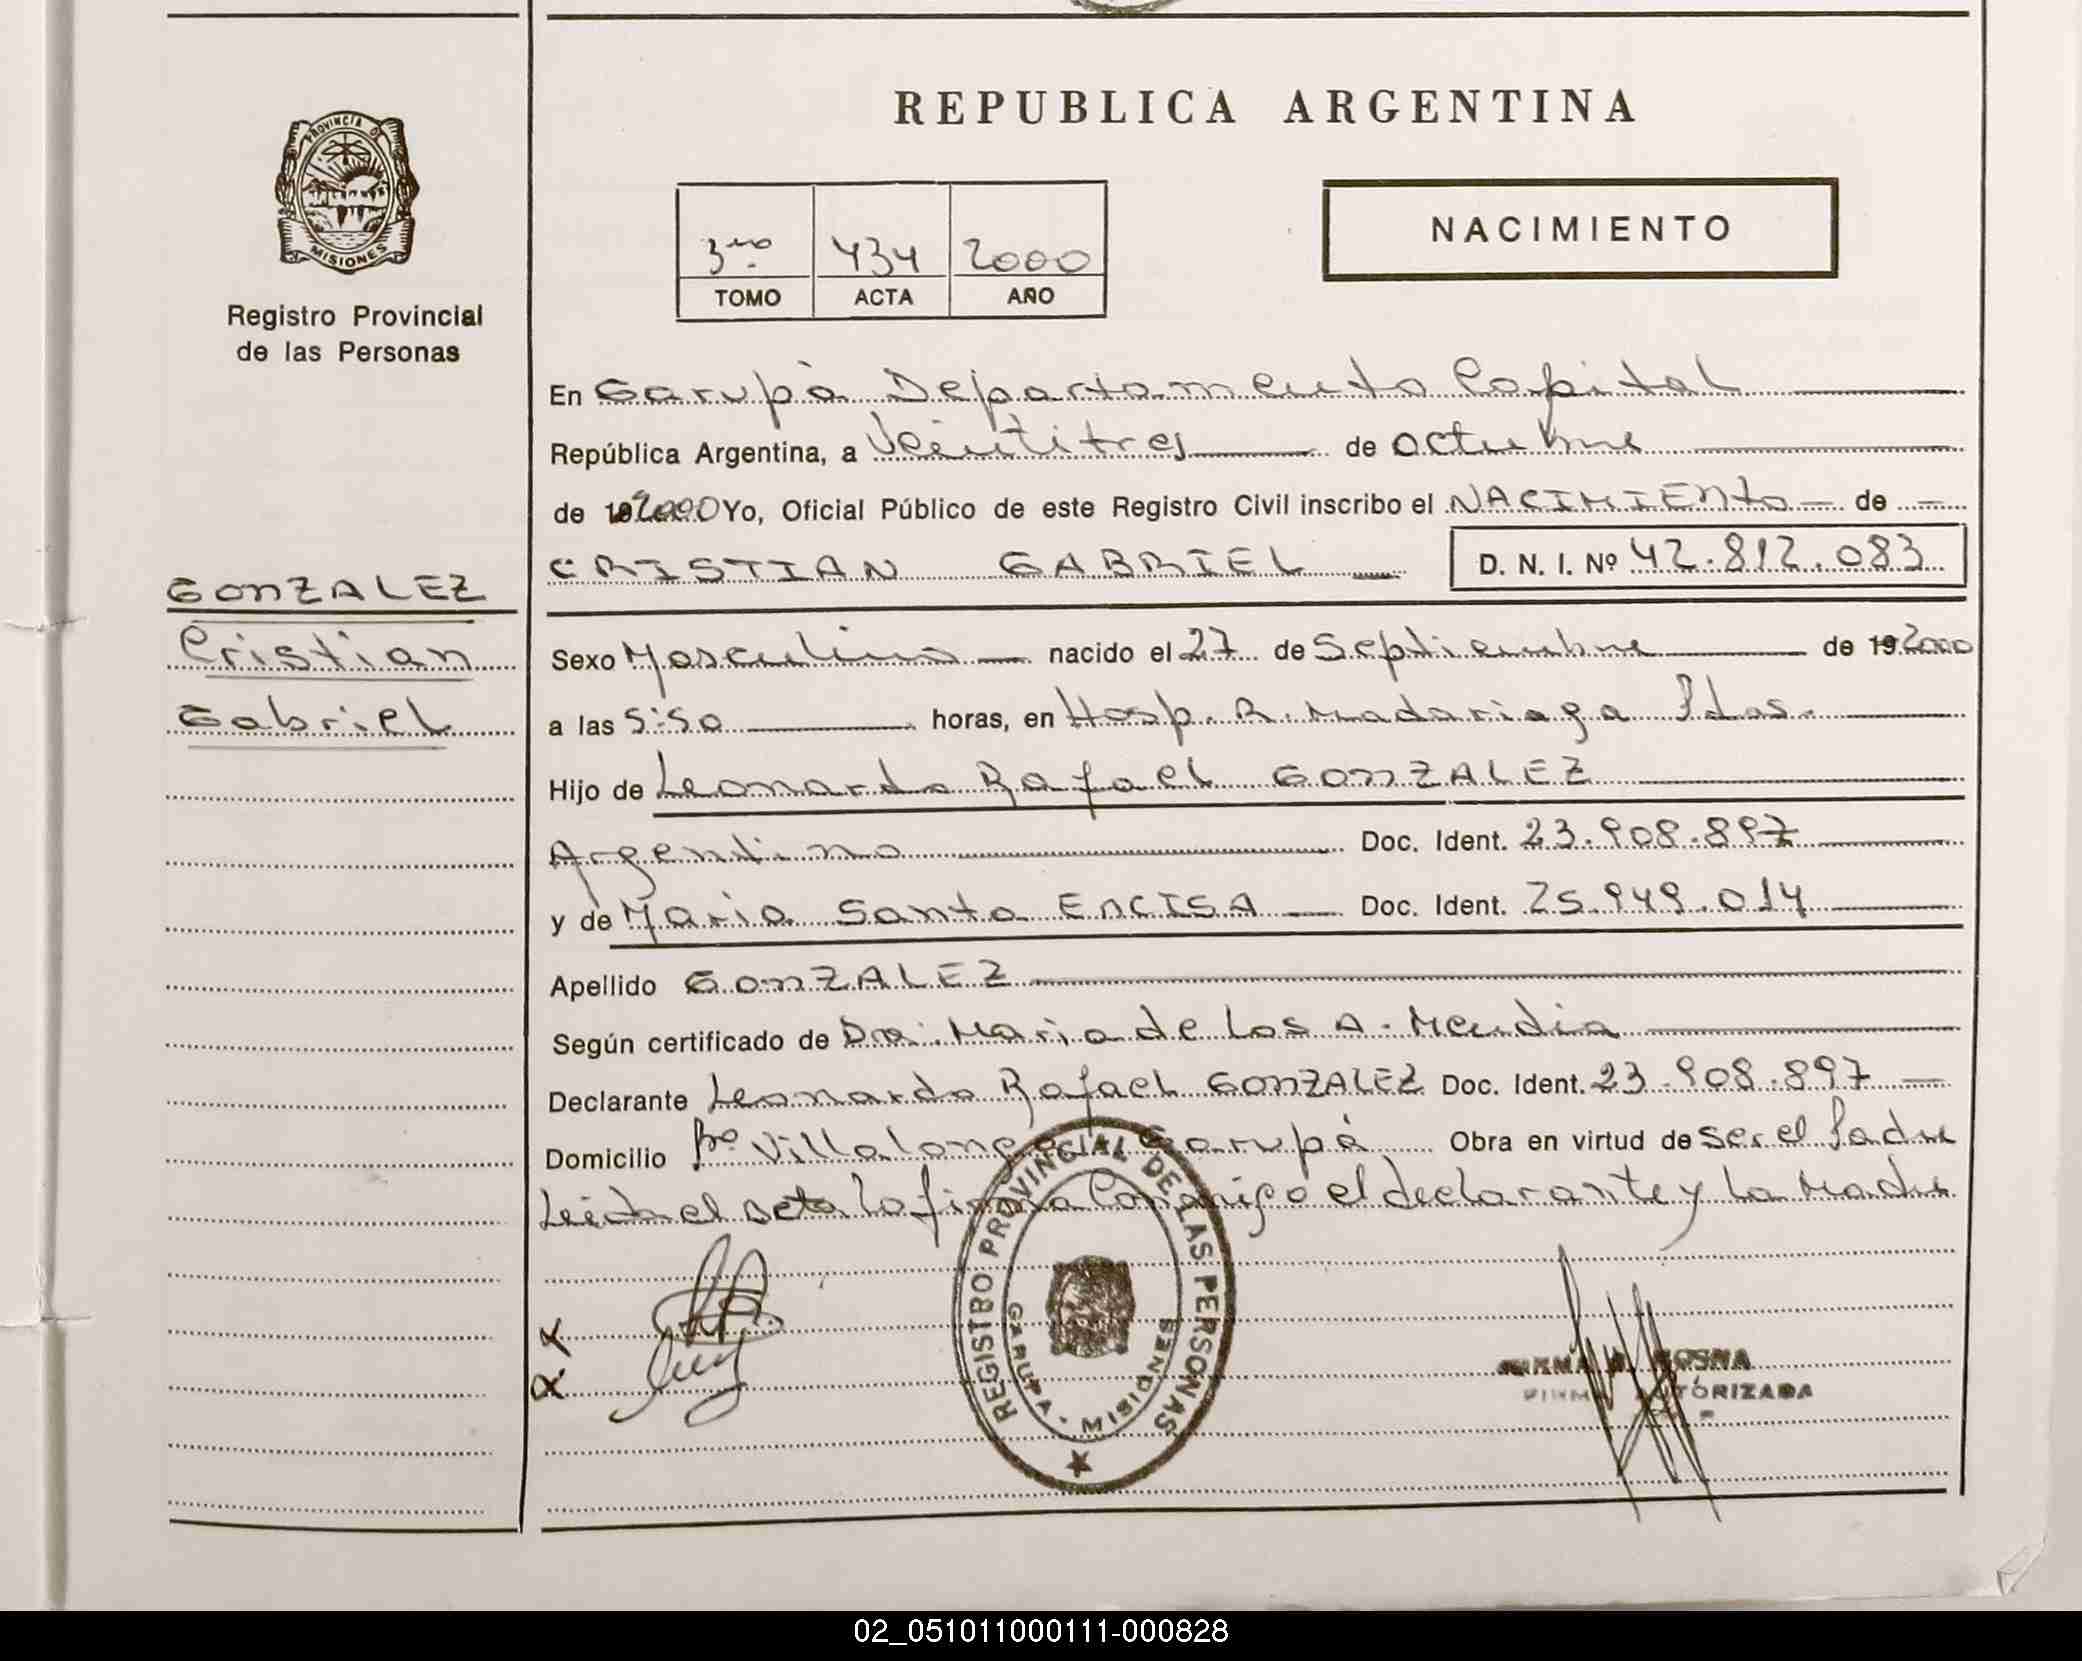 REPUBLICA ARGENTINA
PROVINCIA DE
MISIONES
Registro Provincial
de las Personas
NACIMIENTO
3ro 434 2000
TOMO ACTA AÑO
En Garupà Departamento Capital
República Argentina, a Veintitres de octubre
de 192000 Yo, Oficial Público de este Registro Civil inscribo el NACIMIENto de
CRISTIAN GABRIEL D. N. I. Nº 42.812.083
GONZALEZ
Cristian
Gabriel
Sexo Masculino nacido el 27 de Septiembre de 192000
a las 5:50 horas, en Hosp. R. Madariaga Pdas.
Hijo de Leonardo Rafael GONZALEZ
Argentino Doc. Ident. 23.908.897
y de Maria Santa ENCISA Doc. Ident. 25.949.014
Apellido GONZALEZ
Según certificado de Dra. Maria de Los A. Mendia
Declarante Leonardo Rafael GONZALEZ Doc. Ident. 23.908.897
Domicilio Bº Villalonga Garupá Obra en virtud de ser el Padre
Leida el acta la firma Conmigo el declarante y La Madre
REGISTRO PROVINCIAL DE LAS PERSONAS
GARUPA - MISIONES
AUTORIZADA
02_051011000111-000828